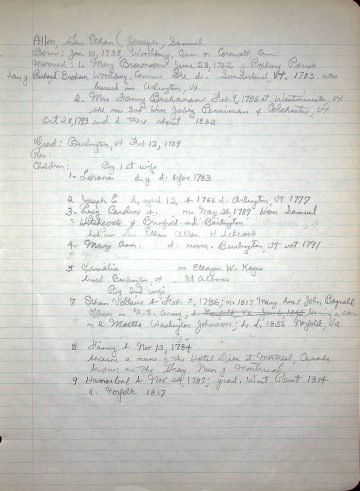 Allen, Gen Ethan (Joseph, Samuel
Born: Jan. 10, 1738, Woodbury, Conn or Cornwall Conn
Married: 1. Mary Brownson June 23, 1762 of Roxbury Parish
Woodbury, Conn. She d. Sunderland, Vt, 1783 was
buried in Arlington, Vt
2. Mrs Fanny Buchanan Feb 9, 1784 at Westminster, Vt
she m 3rd Jabez Penniman of Colchester, Vt
Oct 28, 1793 and d there about 1832
Died: Burlington, Vt Feb 12, 1789
Res:
Children: By 1st wife
1- Lorana d. y d. 1783
2 Joseph E d. Arlington, VT 1777
3- Lucy Caroline m. 1789 Hon Samuel
Hitchcock of Burlington
Ethan Allen Hitchcock
4- Mary Ann. d. Burlington, Vt 1791
5 Pamelia m Eleazer W. Keyes
lived Burlington St Albans
By 2nd wife
7 Ethan Voltaire b Feb 3, 1786; m 1817 Mary dau John Bagnall
Officer in U.S. Army; d Norfolk, Va Jan 6, 1845 leaving a son
m 2 Martha Washington Johnson; he d. 1856 Norfolk, Va
8 Fanny b Nov 13, 1784
became a nun of the Hotel Dieu at Montreal, Canada
known as the Gray Nun of Montreal
9 Hannibal b Nov 24, 1787; grad. West Point 1804
d. Norfolk 1817